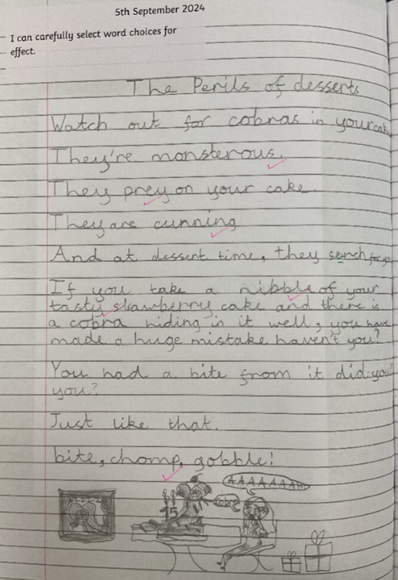 5th September 2024
I can carefully select word choices for
effect.
The Perils of desserts
Watch out for cobras in your cake
They're monsterous.
They prey on your cake.
They are cunning
And at dessert time, they serch for you
If you take a nibble of your
tasty strawberry cake and there is
a cobra hiding in it well, you have
made a huge mistake haven't you?
You had a bite from it did you
you?
Just like that.
bite, chomp, gobble!
AAAAAAAAH
15